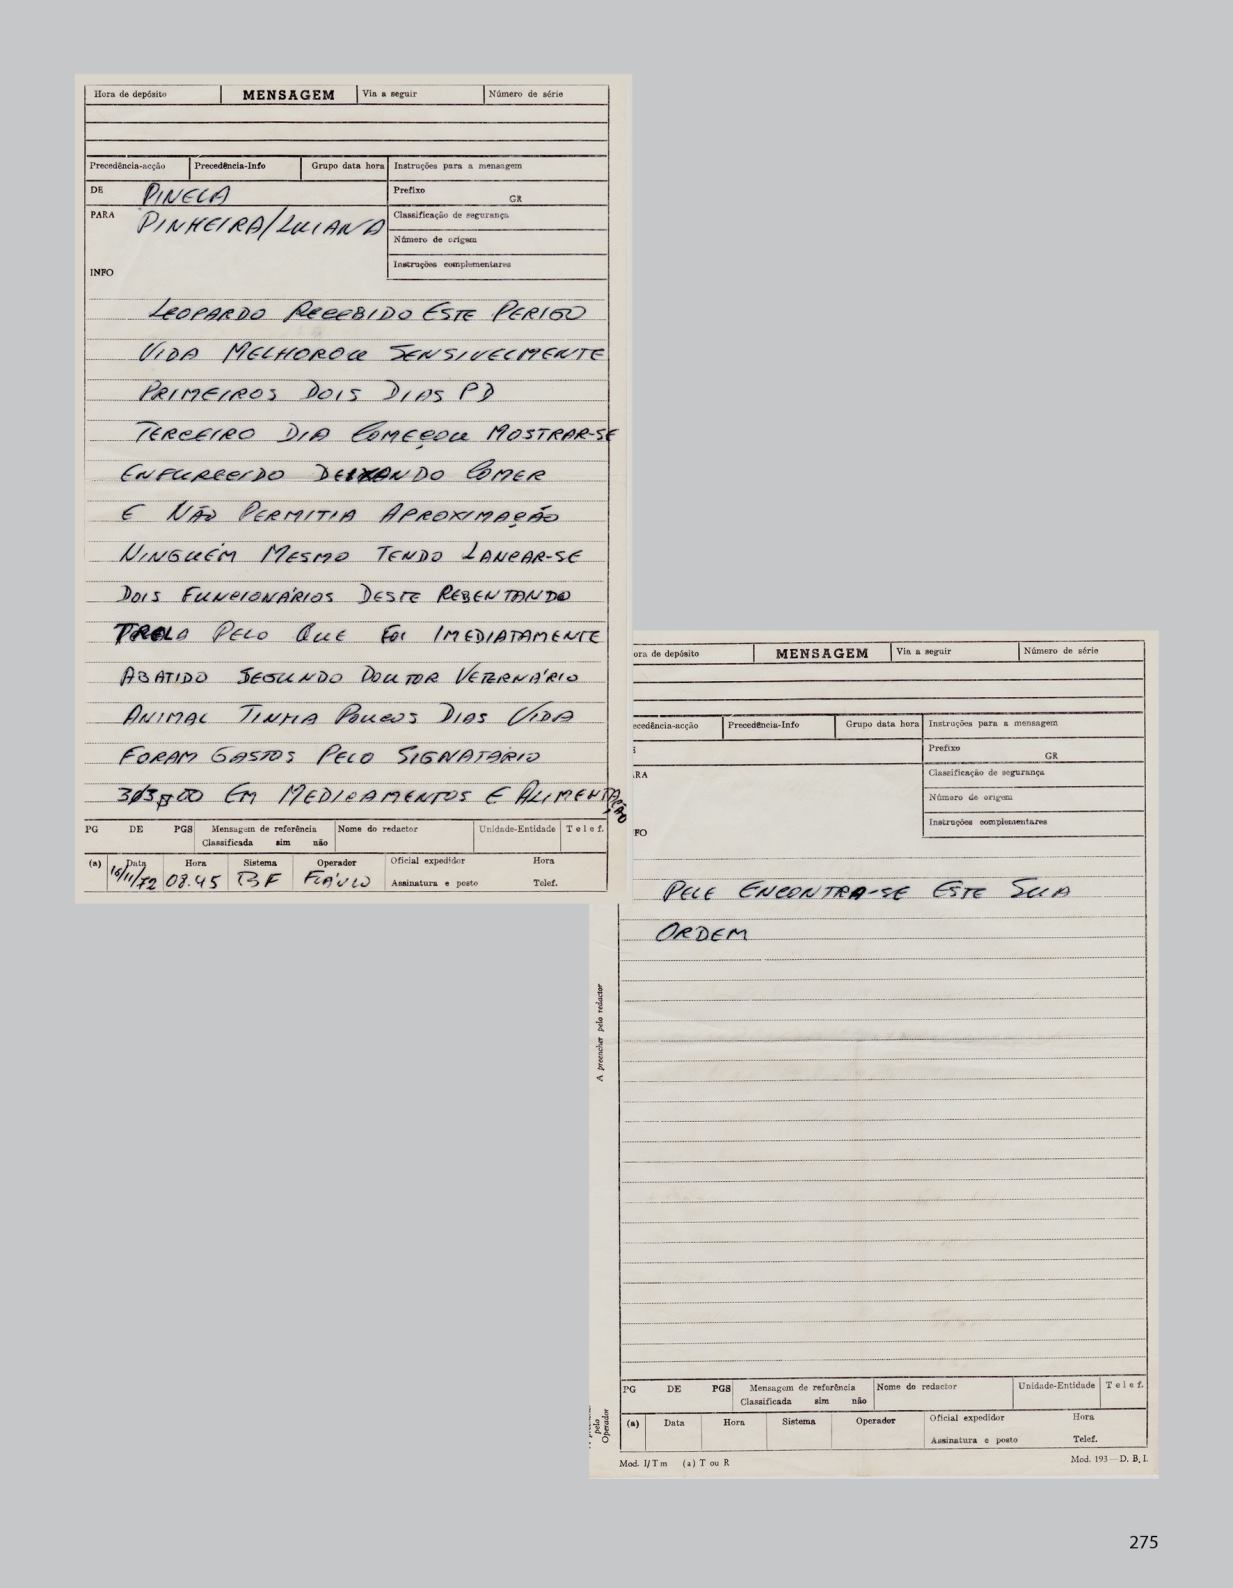 Hora de depósito MENSAGEM Via a seguir Número de série
Precedência-acção Precedência-Info Grupo data hora Instruções para a mensagem
DE PINELA Prefixo GR
PARA PINHEIRA/LUIANA Classificação de segurança
Número de origem
INFO Instruções complementares
LEOPARDO RECEBIDO ESTE PERIGO
VIDA MELHOROU SENSIVELMENTE
PRIMEIROS DOIS DIAS PD
TERCEIRO DIA COMEÇOU MOSTRAR-SE
ENFURECIDO DEIXANDO COMER
E NÃO PERMITIA APROXIMAÇÃO
NINGUÉM MESMO TENDO LANCAR-SE
DOIS FUNCIONÁRIOS DESTE REBENTANDO
TRELA PELO QUE FOI IMEDIATAMENTE
ABATIDO SEGUNDO DOUTOR VETERNÁRIO
ANIMAL TINHA POUCOS DIAS VIDA
FORAM GASTOS PELO SIGNATÁRIO
313$00 EM MEDICAMENTOS E ALIMENTAÇÃO
PG DE PGS Mensagem de referência Nome do redactor Unidade-Entidade Telef.
Classificada sim não
(a) Data Hora Sistema Operador Oficial expedidor Hora
16/11/72 08.45 BF FLÁVIO Assinatura e posto Telef.
ora de depósito MENSAGEM Via a seguir Número de série
ecedência-acção Precedência-Info Grupo data hora Instruções para a mensagem
Prefixo GR
RA Classificação de segurança
Número de origem
FO Instruções complementares
PELE ENCONTRA-SE ESTE SUA
ORDEM
A preencher pelo redactor
PG DE PGS Mensagem de referência Nome do redactor Unidade-Entidade Telef.
Classificada sim não
(a) Data Hora Sistema Operador Oficial expedidor Hora
Assinatura e posto Telef.
pelo
Operador
Mod. I/Tm (a) T ou R Mod. 193 — D. B. I.
275